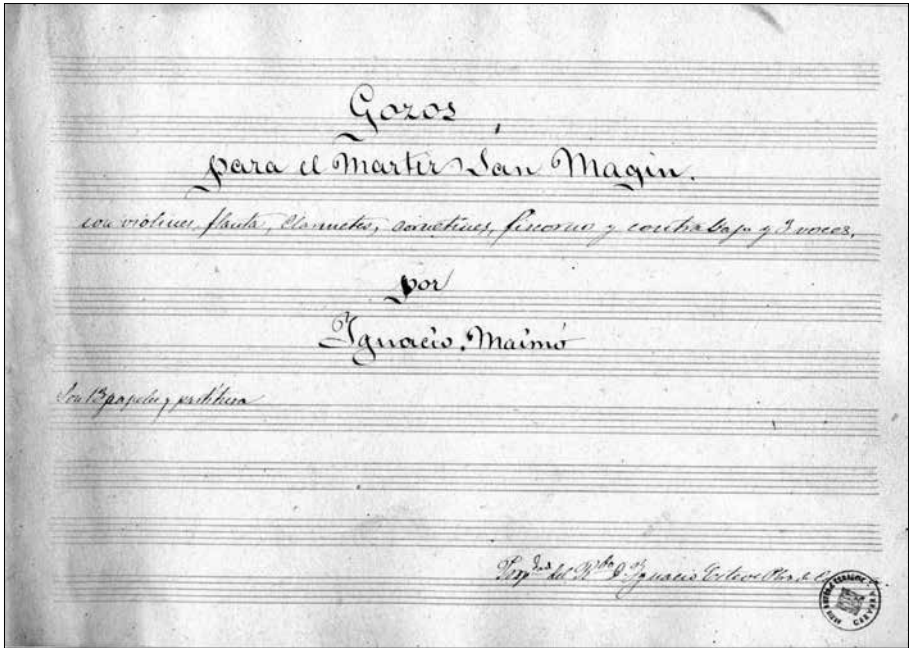 Gozos
para el Martir San Magin.
con violines, flauta, clarinetes, cornetines, fincorno y contrabajo y 3 voces.
por
Ignacio Maimó
Son 13 papeles y partitura
Prop.dad del Rdo D. Ignacio Esteve Pbro. de
CERVERA